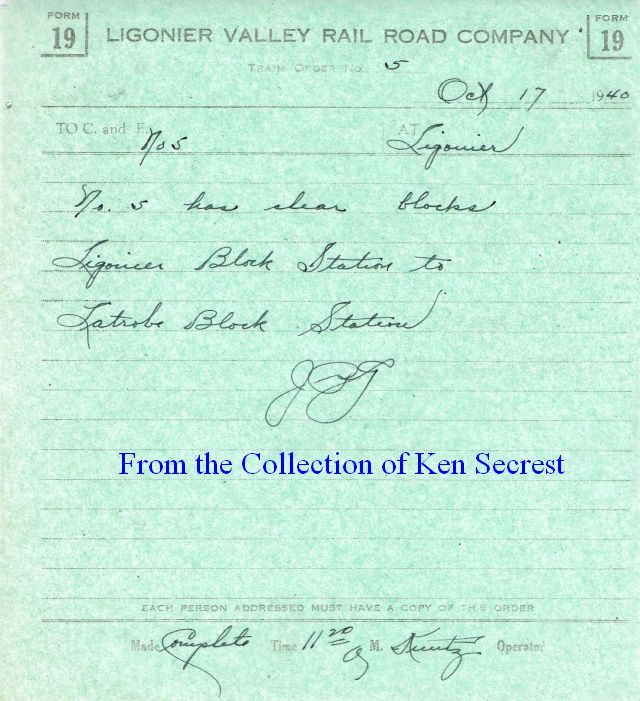 FORM 19 LIGONIER VALLEY RAIL ROAD COMPANY FORM 19
TRAIN ORDER NO. 5
Oct 17 1940
TO C. and E. No 5 AT Ligonier
No. 5 has clear blocks
Ligonier Block Station to
Latrobe Block Station
From the Collection of Ken Secrest
EACH PERSON ADDRESSED MUST HAVE A COPY OF THIS ORDER
Made Complete Time 11 20 a M. Kuntz Operator